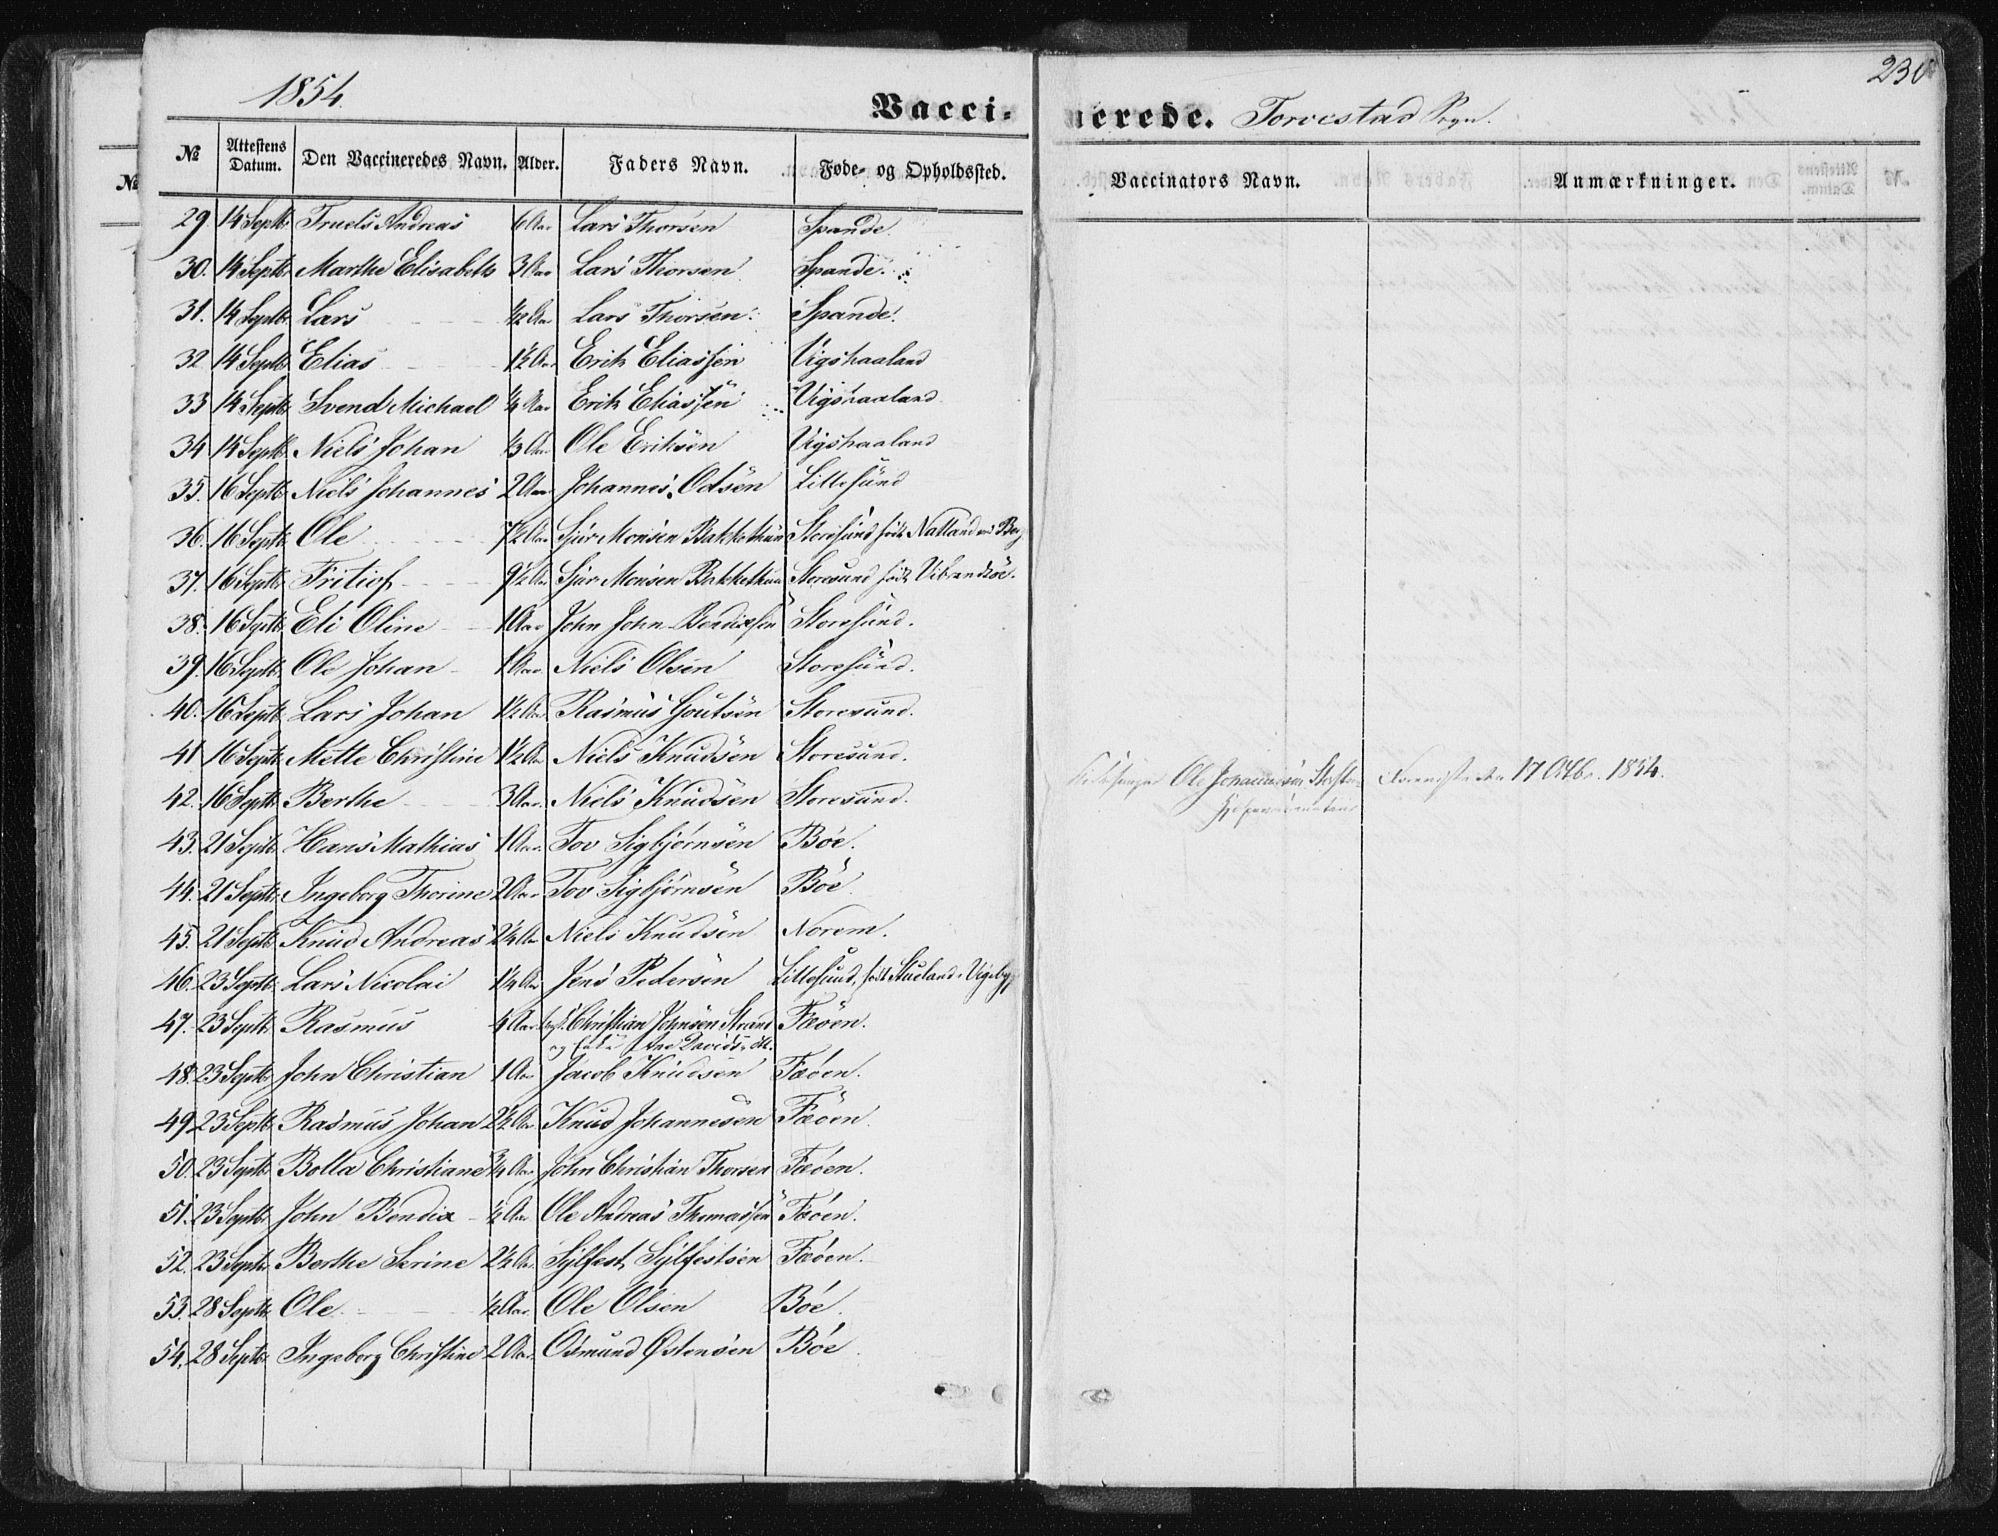 1854.
230
Vaccinerede. Torvestad Sogn.
№ Attestens Datum. Den Vaccineredes Navn. Alder. Faders Navn. Føde- og Opholdssted. Vaccinators Navn. Anmærkninger.
29. 14 Septb. Truels Andreas 6 Aar Lars Thorsen Spande.
30. 14 Septbr. Marthe Elisabeth 3 Aar Lars Thorsen Spande.
31. 14 Septbr. Lars ½ Aar Lars Thorsen. Spande.
32 14 Septb. Elias 1½ Aar Erik Eliassen Vigshaaland
33 14 Septb. Svend Michael ¼ Aar Erik Eliassen Vigshaaland
34 14 Septb. Niels Johan ⅓ Aar Ole Eriksen Vigshaaland
35. 16 Septb. Niels Johannes 2 Aar Johannes Odsen Littesund
36. 16 Septb. Ole 7½ Aar Sjur Monsen Bakkethun Storesund født Natland ved Berg
37. 16 Septb. Fritiof 9½ Aar Sjur Monsen Bakkethun Storesund født Vibrandsöe.
38. 16 Septb. Eli Oline 1 Aar John John Bendixsen Storesund.
39. 16 Septb. Ole Johan 1 Aar Niels Olsen Storesund.
40. 16 Septb. Lars Johan 1½ Aar Rasmus Goutsen Storesund.
41 16 Septb. Mette Christine 1½ Aar Niels Knudsen Storesund.
42. 16 Septb. Berthe 3 Aar. Niels Knudsen Storesund.
Ole Johannesen 17 Octbr. 1854.
43. 21 Septb. Hans Mathias 1 Aar. Tov Sigbjørnsen Böe.
44. 21 Septb. Ingeborg Thorine 2 Aar Tov Sigbjørnsen Böe
45. 21 Septb. Knud Andreas 2¼ Aar Niels Knudsen Norem.
46. 23 Septb. Lars Nicolai 1¼ Aar Jens Pedersen Littesund, født Stueland i Vigebygd
47. 23 Septb. Rasmus 4 Aar Christian Johnsen Strand Fæöen.
og Ane Davidsdtr.
48. 23 Septb. John Christian 1 Aar Jacob Knudsen Fæöen.
49. 23 Septb. Rasmus Johan 2½ Aar Knud Johannesen Fæöen.
50. 23 Septb. Bolla Christiane ¾ Aar. John Christian Thorsen Fæöen.
51. 23 Septb. John Bendix ½ Aar Ole Andreas Thomassen Fæöen.
52. 23 Septb. Berthe Serine 2½ Aar Sylfest Sylfestsen Fæöen.
53. 28 Septb. Ole ½ Aar. Ole Olsen Böe.
54. 28 Septb. Ingeborg Christine 2 Aar. Osmund Østensen Böe.